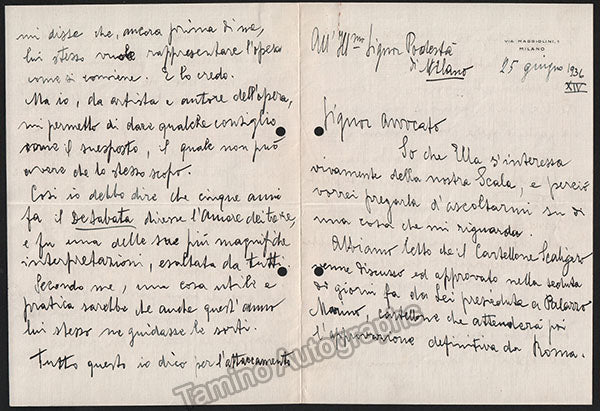 VIA MAGGIOLINI, 1
MILANO
All' Ill.mo Signor Podestà
di Milano
25 giugno 1936
XIV
Signor Avvocato
So che Ella s'interessa
vivamente della nostra Scala, e perciò
vorrei pregarla d'ascoltarmi su di
una cosa che mi riguarda.
Abbiamo letto che il Cartellone Scaligero
venne discusso ed approvato nella seduta
di giorni fa da Lei presieduta a Palazzo
Marino, cartellone che attenderà poi
l'approvazione definitiva da Roma.
mi disse che, ancora prima di me,
lui stesso vuole rappresentare l'opera
come si conviene. E lo credo.
Ma io, da artista e autore dell'opera,
mi permetto di dare qualche consiglio
come il suesposto, il quale non può
avere che lo stesso scopo.
Così io debbo dire che cinque anni
fa il De Sabata diresse l'Amore dei tre re,
e fu una delle sue più magnifiche
interpretazioni, esaltata da tutti.
Secondo me, una cosa utile e
pratica sarebbe che anche quest'anno
lui stesso ne guidasse le sorti.
Tutto questo io dico per l'attaccamento
Tamino Autographs